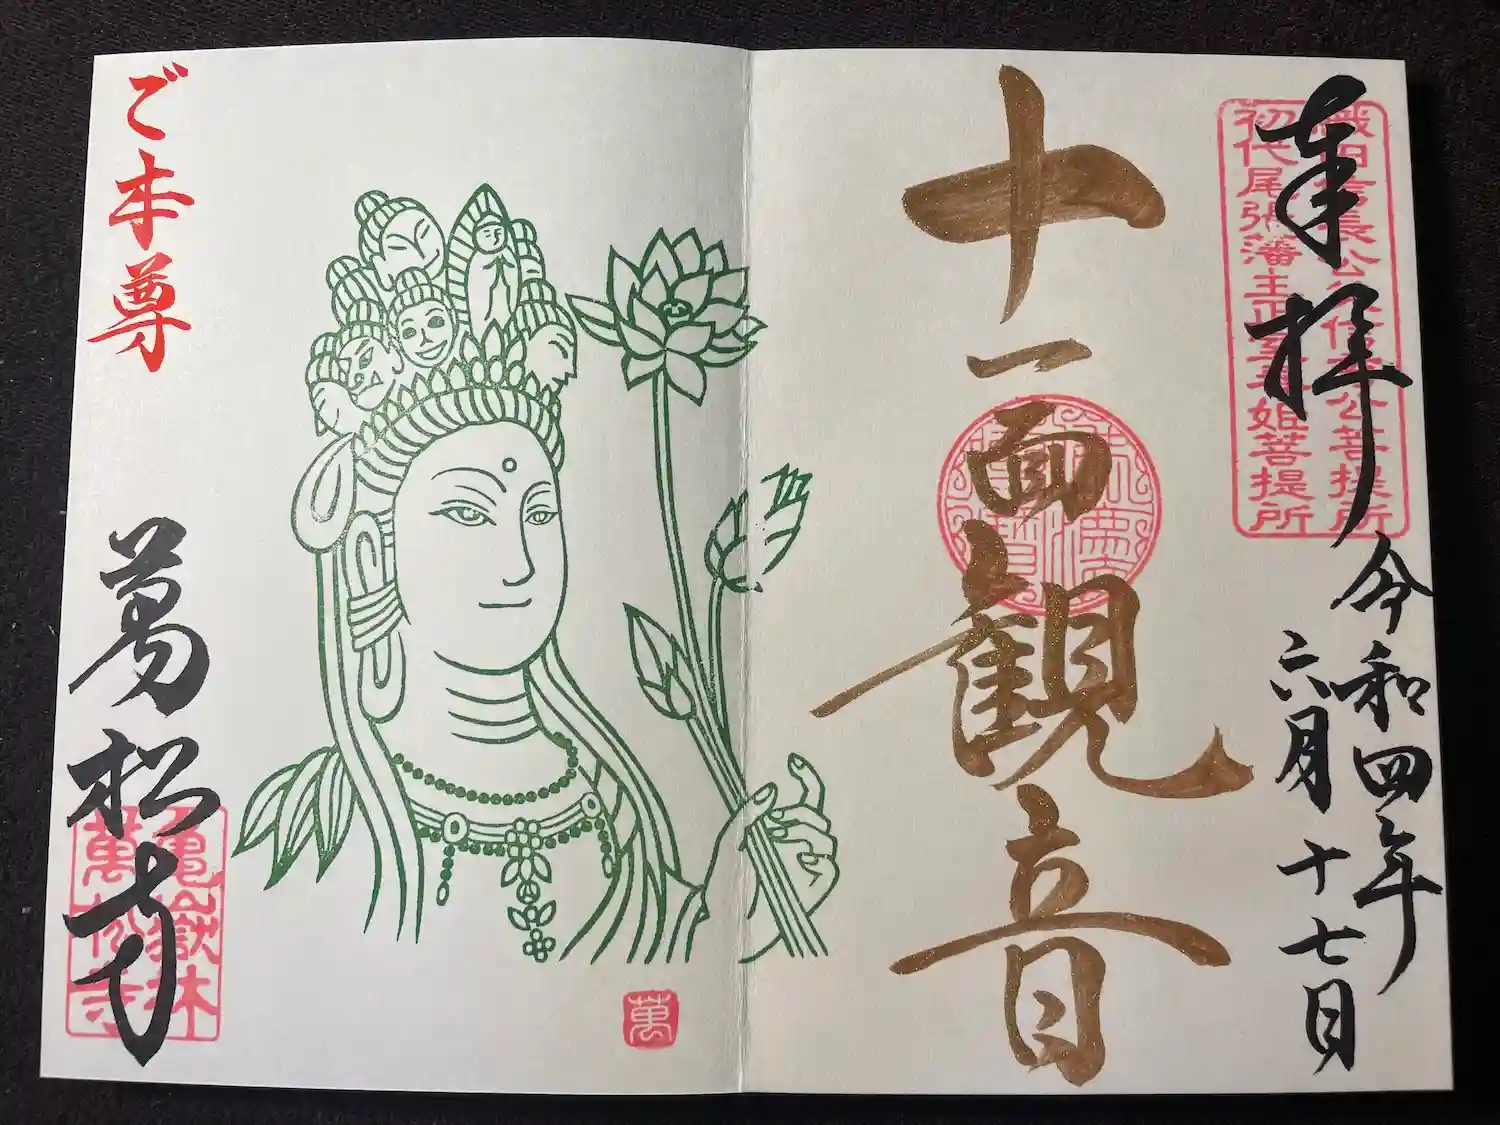 奉拝
令和四年
六月十七日
織田信長公 公菩提所
初代尾張藩主正室春姫菩提所
十一面観音
ご本尊
萬松寺
亀嶽林
萬松寺
萬